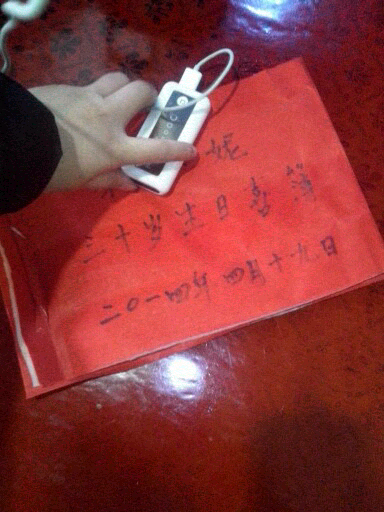 妮
三十岁生日喜簿
二〇一四年四月十九日